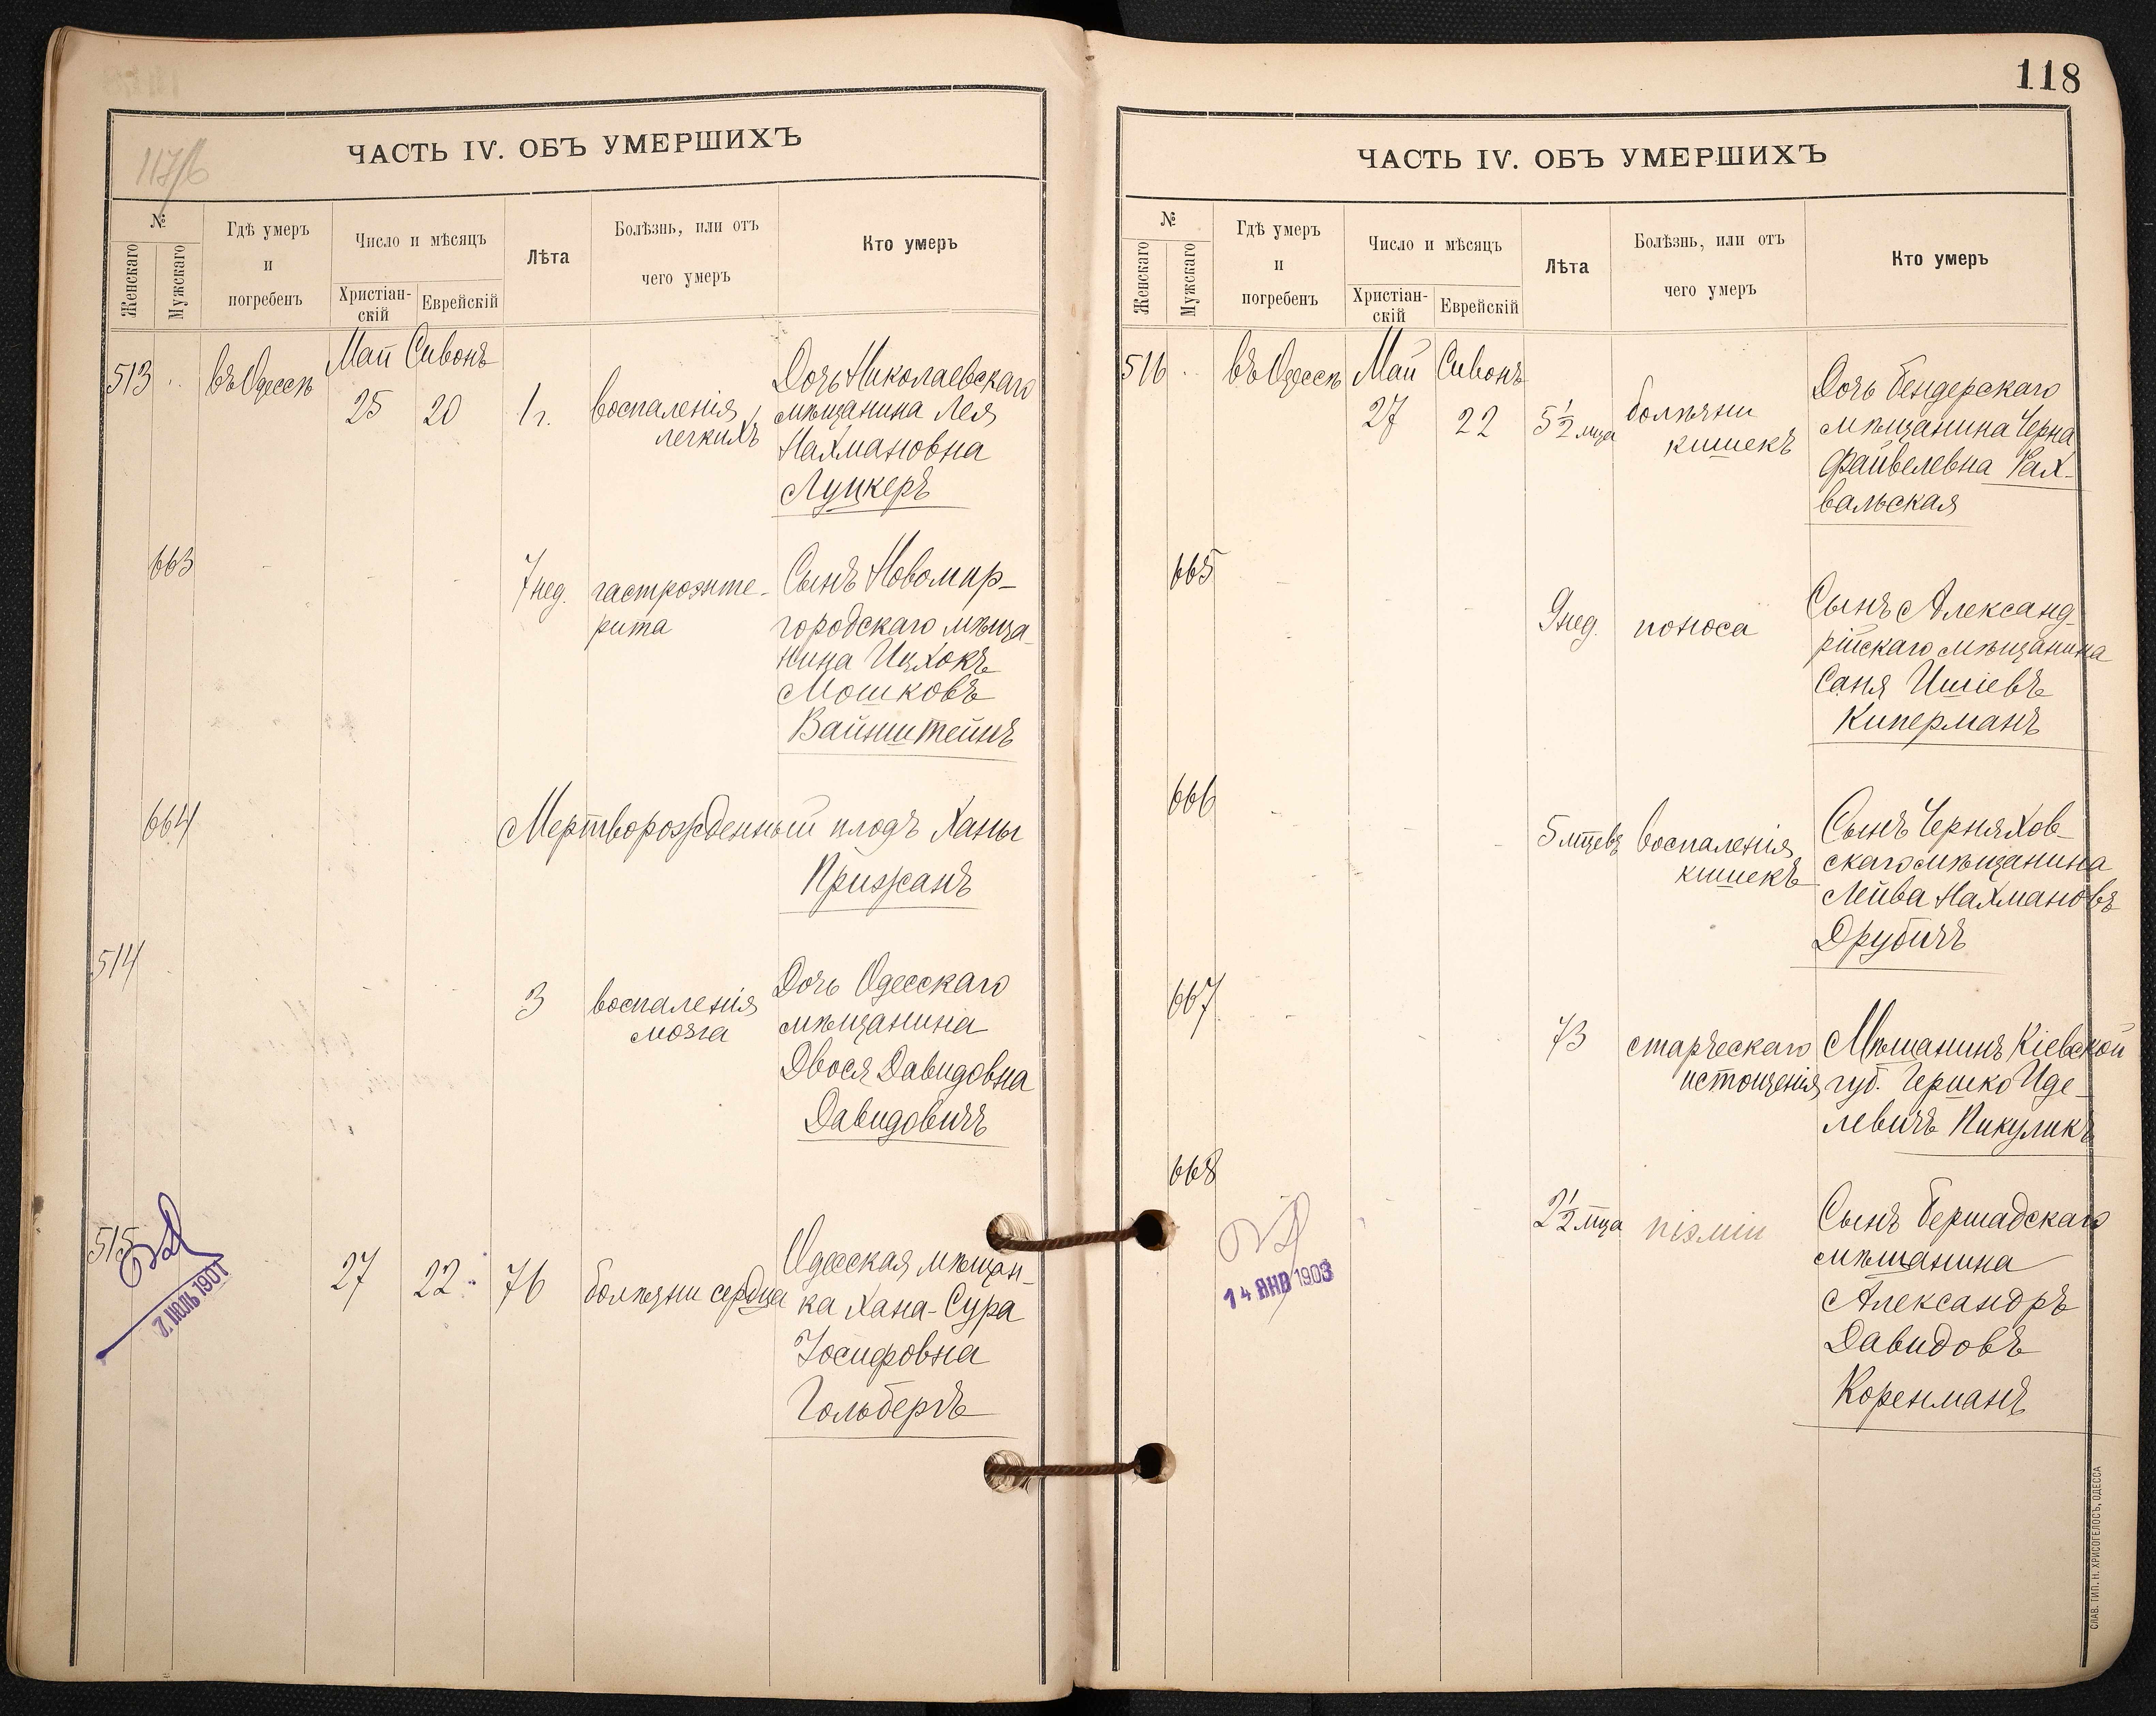 117/б
ЧАСТЬ IV. ОБЪ УМЕРШИХЪ
№
Женскаго
Мужскаго
Гдѣ умеръ
и
погребенъ
Число и мѣсяцъ
Христіан-
скій
Еврейскій
Лѣта
Болѣзнь, или отъ
чего умеръ
Кто умеръ
513
въ Одессѣ
Май Сивонъ
25 20
1 г.
воспаленія
легкихъ
Дочь Николаевскаго
мѣщанина Лея
Нахмановна
Луцкеръ
663
7 нед.
гастроэнте-
рита
Сынъ Новомир-
городскаго мѣща-
нина Ицхокъ
Мошковъ
Вайнштейнъ
664
Мертворожденный плодъ Ханы
Прижанъ
514
3
воспаленія
мозга
Дочь Одесскаго
мѣщанина
Двося Давидовна
Давидовичъ
515
27 22 76
болѣзни сердца
Одесская мѣщан-
ка Хана-Сура
Іосифовна
Гольбергъ
7. ІЮЛЬ 1901
118
ЧАСТЬ IV. ОБЪ УМЕРШИХЪ
№
Женскаго
Мужскаго
Гдѣ умеръ
и
погребенъ
Число и мѣсяцъ
Христіан-
скій
Еврейскій
Лѣта
Болѣзнь, или отъ
чего умеръ
Кто умеръ
516
въ Одессѣ
Май Сивонъ
27 22
5 1/2 мца
болѣзни
кишекъ
Дочь Бендерскаго
мѣщанина Черна
Файвелевна Рах-
вальская
665
9 нед.
поноса
Сынъ Александ-
рійскаго мѣщанина
Саня Ишіевъ
Киперманъ
666
5 мцевъ
воспаленія
кишекъ
Сынъ Черняхов-
скаго мѣщанина
Лейва Нахмановъ
Друбичъ
667
73
старческаго
истощенія
Мѣщанинъ Кіевской
губ. Гершко Иде-
левичъ Пикуликъ
668
2 1/2 мца
піэміи
Сынъ Бершадскаго
мѣщанина
Александръ
Давидовъ
Коренманъ
14 ЯНВ 1903
СЛАВ. ТИП. Н. ХРИСОГЕЛОСЪ, ОДЕССА